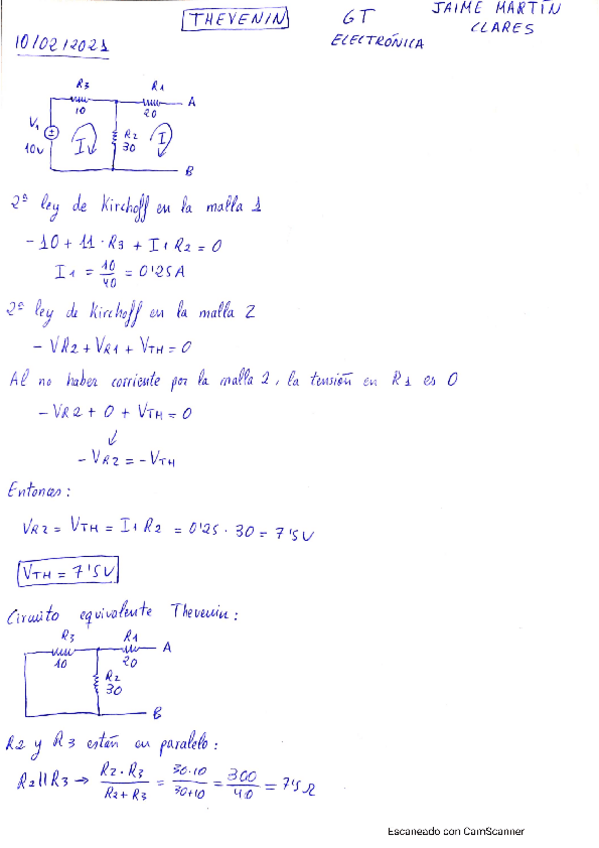 THEVENIN
GT
ELECTRÓNICA
JAIME MARTÍN
CLARES
10/02/2021
R3
R1
10
20
A
V1
10V
I
R2
30
I
B
2ª ley de Kirchoff en la malla 1
-10 + I1 · R3 + I1 R2 = 0
I1 = 10/40 = 0'25A
2ª ley de Kirchoff en la malla 2
- VR2 + VR1 + VTH = 0
Al no haber corriente por la malla 2, la tensión en R1 es 0
- VR2 + 0 + VTH = 0
↓
- VR2 = - VTH
Entonces:
VR2 = VTH = I1 R2 = 0'25 · 30 = 7'5V
VTH = 7'5V
Circuito equivalente Thevenin:
R3
R1
10
20
A
R2
30
B
R2 y R3 están en paralelo:
R2||R3 → R2 · R3 / R2 + R3 = 30·10 / 30+10 = 300/40 = 7'5 Ω
Escaneado con CamScanner